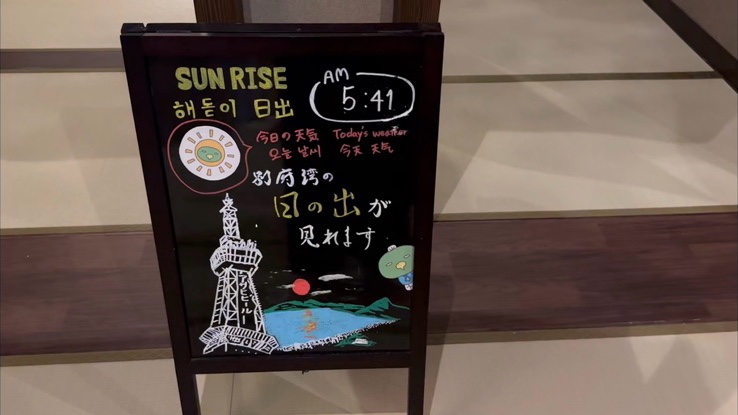 SUN RISE
AM 5:41
해돋이 日出
今日の天気 Today's weather
오늘 날씨 今天 天气
別府湾の
日の出が
見れます
アサヒビール